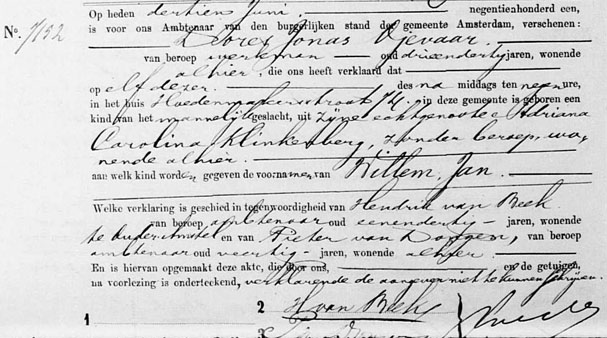 Op heden dertien Juni. negentienhonderd een,
N°. 7152 is voor ons Ambtenaar van den burgerlijken stand der gemeente Amsterdam, verschenen:
Jonas
van beroep werkman oud drieendertig jaren, wonende
alhier, die ons heeft verklaard dat
op elf dezer. des na middags ten negen ure,
in het huis Hoedenmakerstraat 74. in deze gemeente is geboren een
kind van het mannelijk geslacht, uit zijne echtgenoote Adriana
Carolina Klinkenberg, zonder beroep, wo-
nende alhier.
aan welk kind worden gegeven de voornamen van Willem Jan.
Welke verklaring is geschied in tegenwoordigheid van Hendrik van Beek
van beroep ambtenaar oud eenendertig jaren, wonende
te en van Pieter van Dongen, van beroep
ambtenaar oud veertig jaren, wonende alhier
En is hiervan opgemaakt deze akte, die door ons, en de getuigen,
na voorlezing is onderteekend, verklarende de aangever niet te kunnen schrijven.
1 2 H van Beek
3